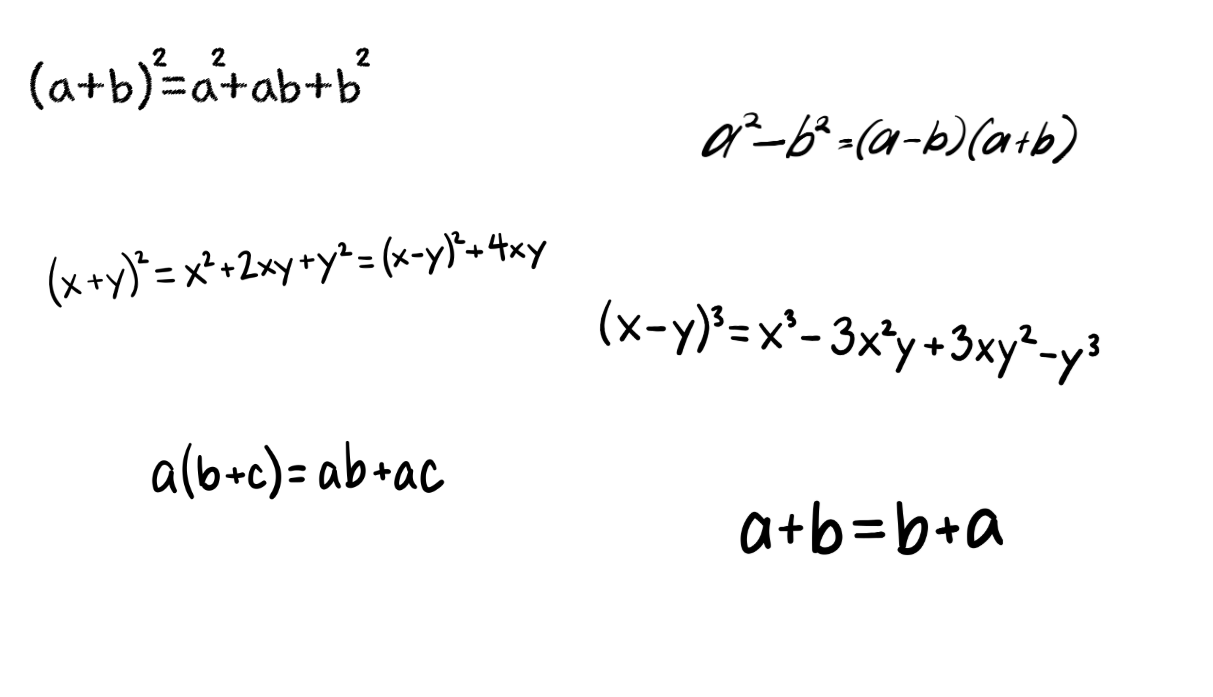 (a+b)²=a²+ab+b²
a²-b²=(a-b)(a+b)
(x+y)²=x²+2xy+y²=(x-y)²+4xy
(x-y)³=x³-3x²y+3xy²-y³
a(b+c)=ab+ac
a+b=b+a